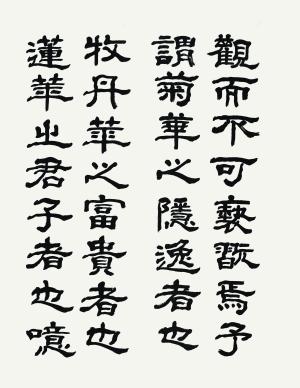 觀而不可褻翫焉予
謂菊華之隱逸者也
牧丹華之富貴者也
蓮華之君子者也噫